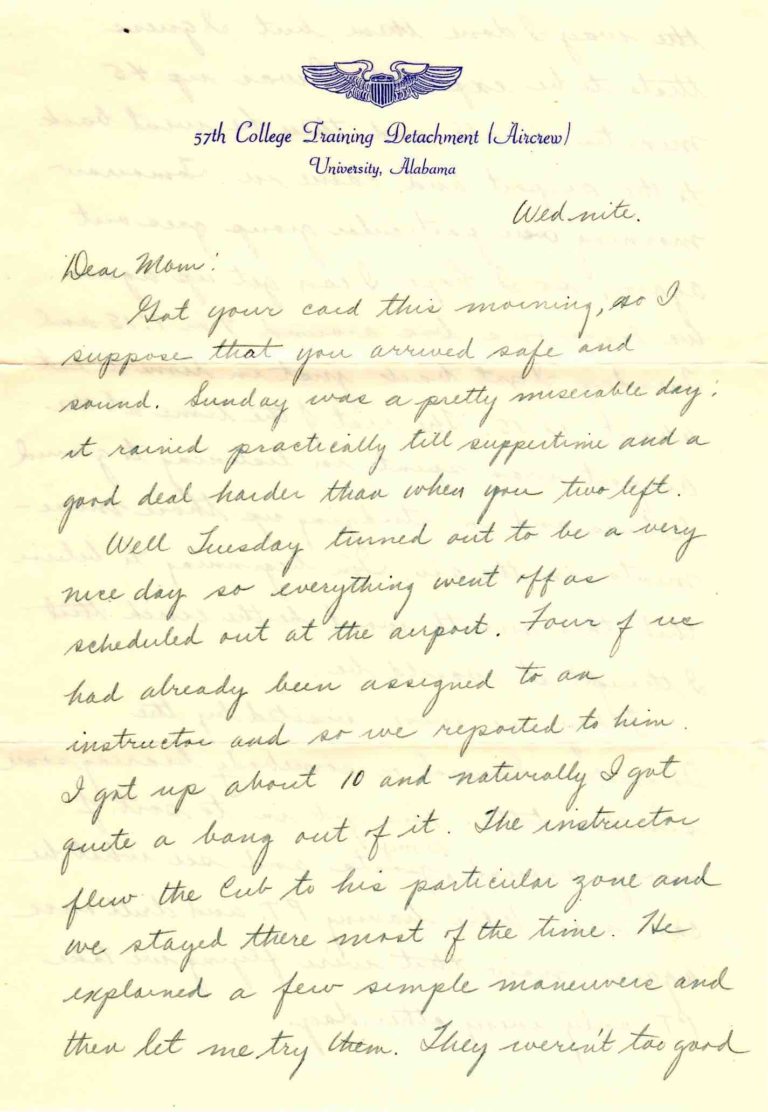 57th College Training Detachment (Aircrew)
University, Alabama
Wed nite.
Dear Mom:
Got your card this morning, so I
suppose that you arrived safe and
sound. Sunday was a pretty miserable day;
it rained practically till suppertime and a
good deal harder than when you two left.
Well Tuesday turned out to be a very
nice day so everything went off as
scheduled out at the airport. Four of us
had already been assigned to an
instructor and so we reported to him.
I got up about 10 and naturally I got
quite a bang out of it. The instructor
flew the Cub to his particular zone and
we stayed there most of the time. He
explained a few simple maneuvers and
then let me try them. They weren't too good